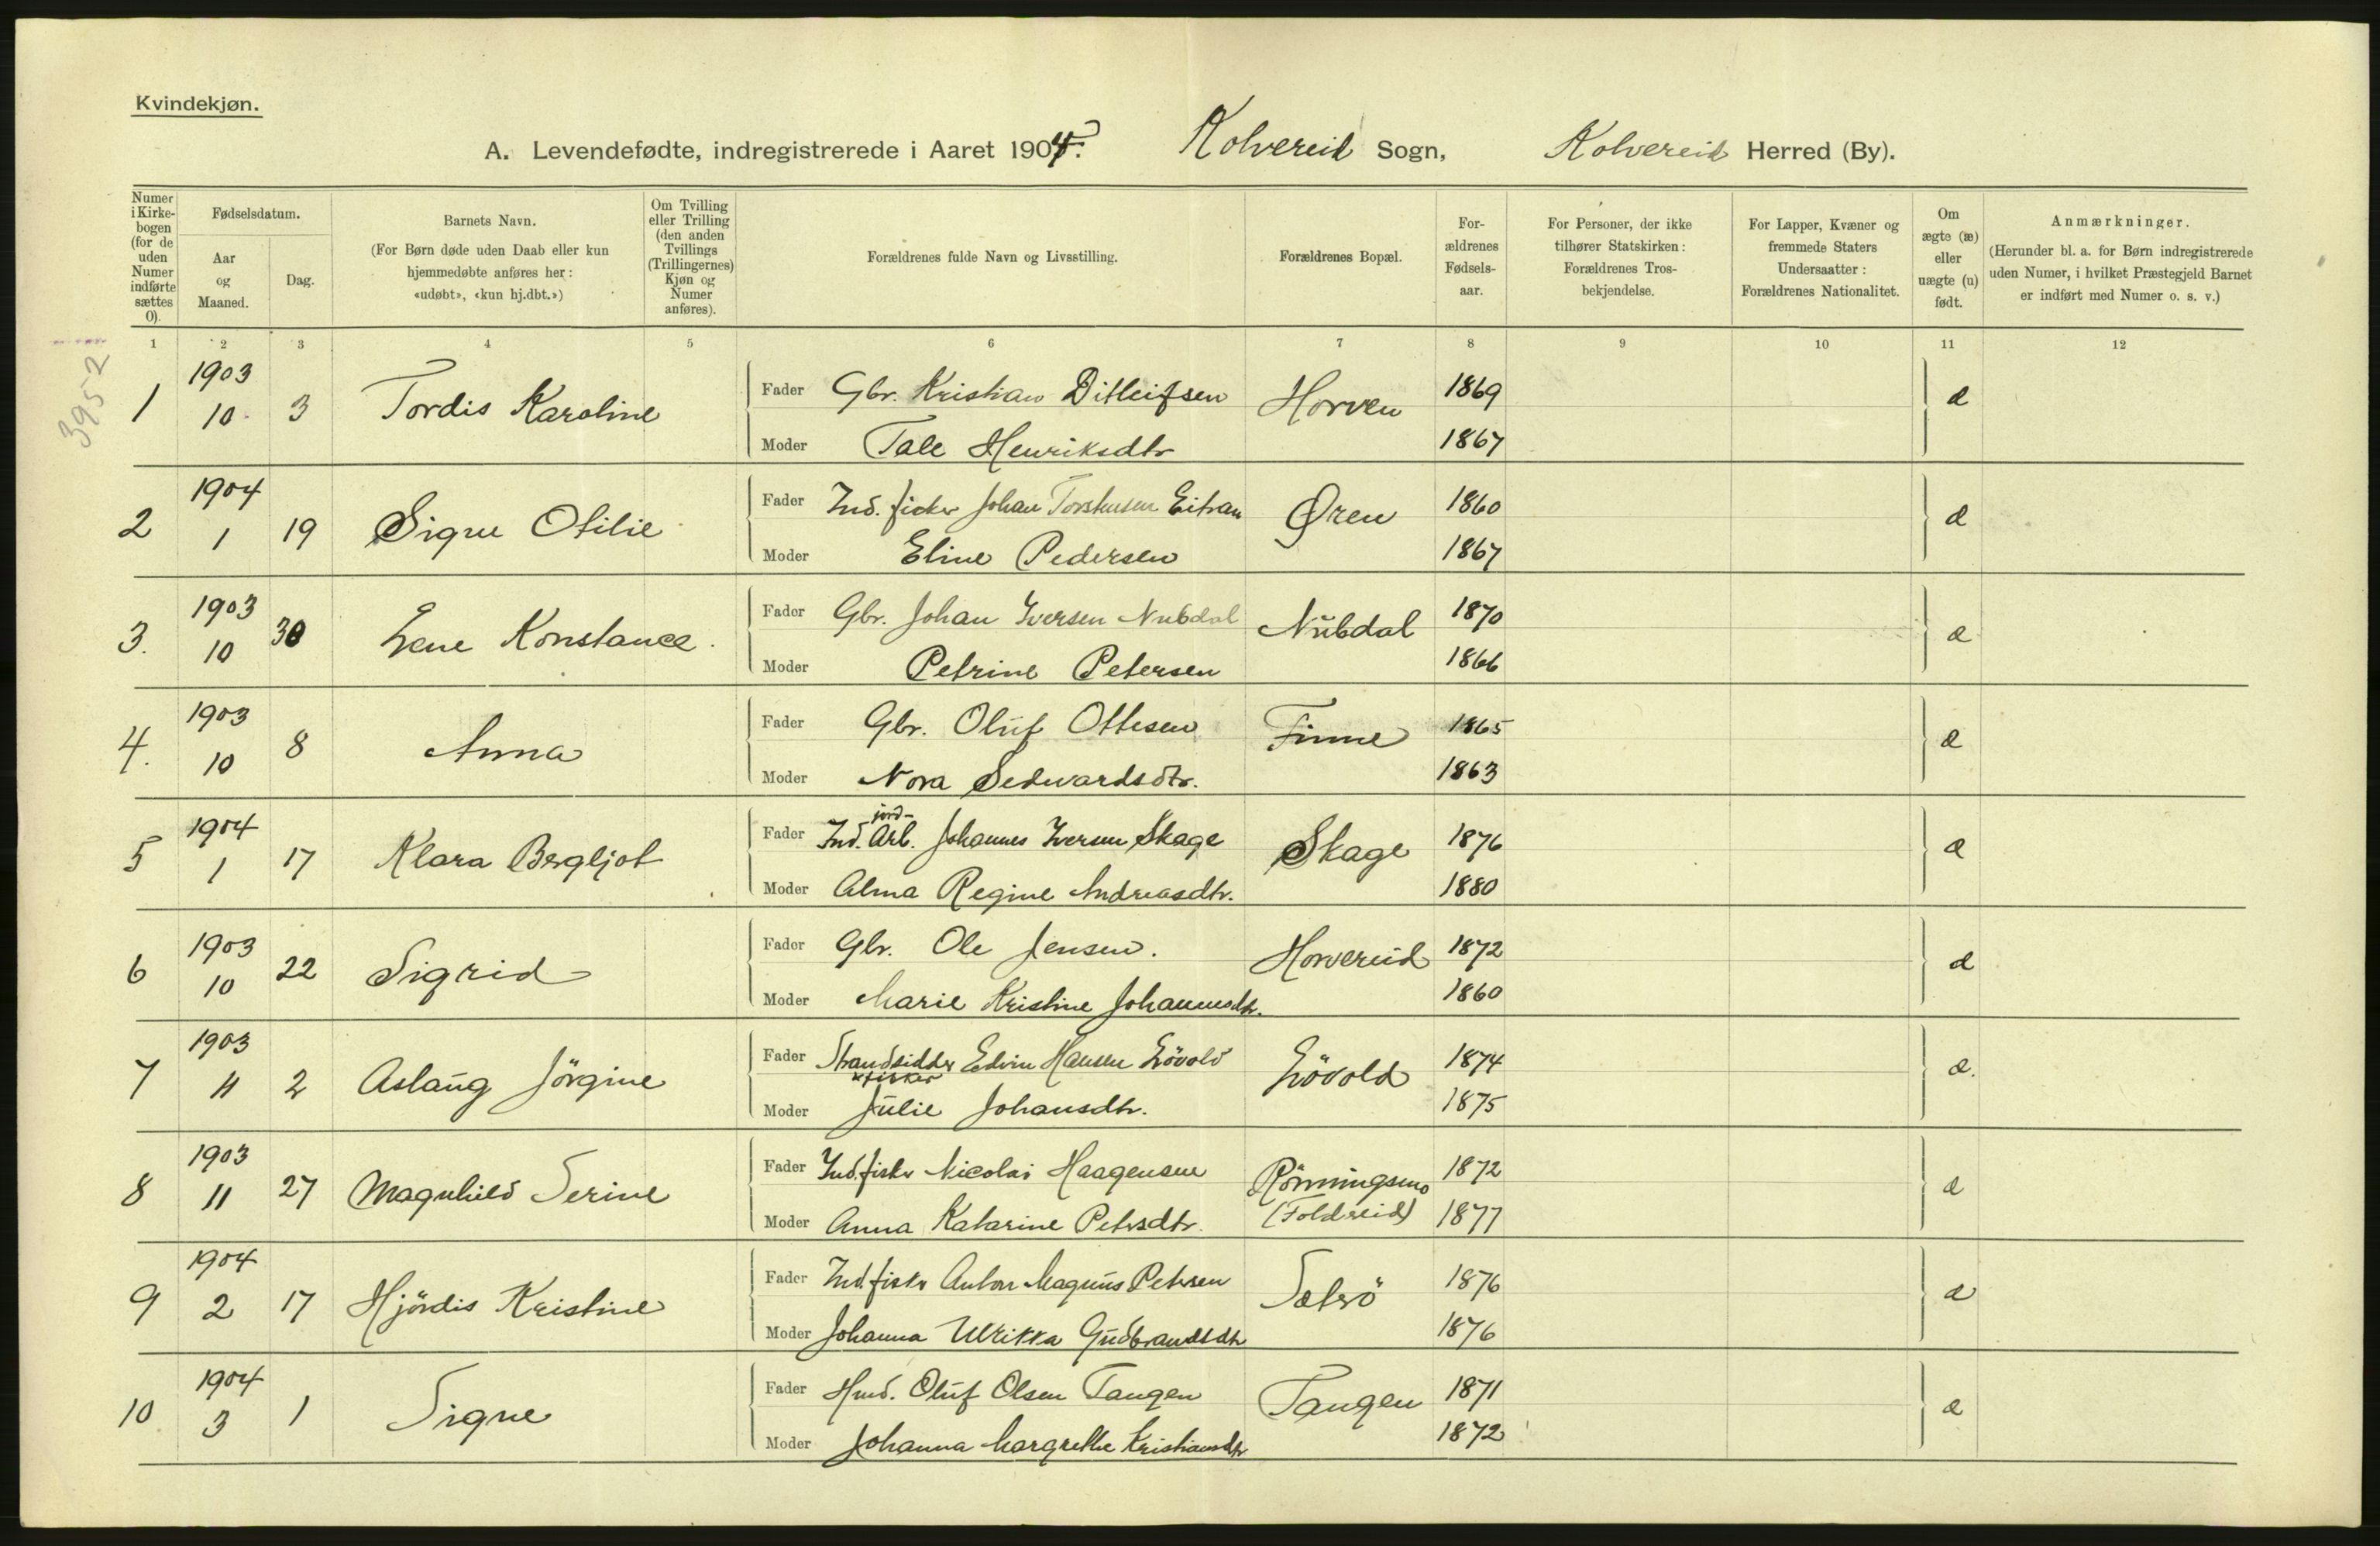 Kvindekjøn.
A. Levendefødte, indregistrerede i Aaret 1904. Kolvereid Sogn, Kolvereid Herred (By).
Numer i Kirkebogen (for de uden Numer indførte sættes 0).
Fødselsdatum.
Aar og Maaned.
Dag.
Barnets Navn.
(For Børn døde uden Daab eller kun
hjemmedøbte anføres her:
«udøbt», «kun hj.dbt.»)
Om Tvilling
eller Trilling
(den anden
Tvillings
(Trillingernes)
Kjøn og
Numer
anføres).
Forældrenes fulde Navn og Livsstilling.
Forældrenes Bopæl.
For-
ældrenes
Fødsels-
aar.
For Personer, der ikke
tilhører Statskirken:
Forældrenes Tros-
bekjendelse.
For Lapper, Kvæner og
fremmede Staters
Undersaatter:
Forældrenes Nationalitet.
Om
ægte (æ)
eller
uægte (u)
født.
Anmærkninger.
(Herunder bl. a. for Børn indregistrerede
uden Numer, i hvilket Præstegjeld Barnet
er indført med Numer o. s. v.)
1 2 3 4 5 6 7 8 9 10 11 12
3952
1 1903 10 3 Tordis Karoline Fader Gbr. Kristian Ditleifsen Horven 1869 æ
Moder Tale Henriksdtr 1867
2 1904 1 19 Signe Otilie Fader Ind. fisker Johan Torstensen Eitran Øren 1860 æ
Moder Eline Pedersen 1867
3. 1903 10 30 Lene Konstance. Fader Gbr. Johan Iversen Nubdal Nubdal 1870 æ
Moder Petrine Petersen 1866
4. 1903 10 8 Anna Fader Gbr. Oluf Ottesen Finne 1865 æ
Moder Nora Sedvardsdtr. 1863
5 1904 1 17 Klara Bergljot Fader Ind. jord-Arb. Johannes Iversen Skage Skage 1876 æ
Moder Alma Regine Andreasdtr. 1880
6 1903 10 22 Sigrid Fader Gbr. Ole Jensen. Horvereid 1872 æ
Moder Marie Kristine Johannesdtr. 1860
7 1903 11 2 Aslaug Jörgine Fader Strandsidder & fisker Edvin Hansen Lövold Lövold 1874 æ.
Moder Julie Johansdtr. 1875
8 1903 11 27 Magnhild Serine Fader Ind. fisker Nicolai Haagensen Rönningsmo (Foldreid) 1872 æ
Moder Anna Katarine Petersdtr. 1877
9 1904 2 17 Hjördis Kristine Fader Ind. fisker Anton Magnus Petersen 1876 æ
Moder Johanna Ulrikka Gudbrandsdtr 1876
10 1904 3 1 Signe Fader Hmd. Oluf Olsen Tangen Tangen 1871 æ
Moder Johanna Margrethe Kristiansdtr 1872